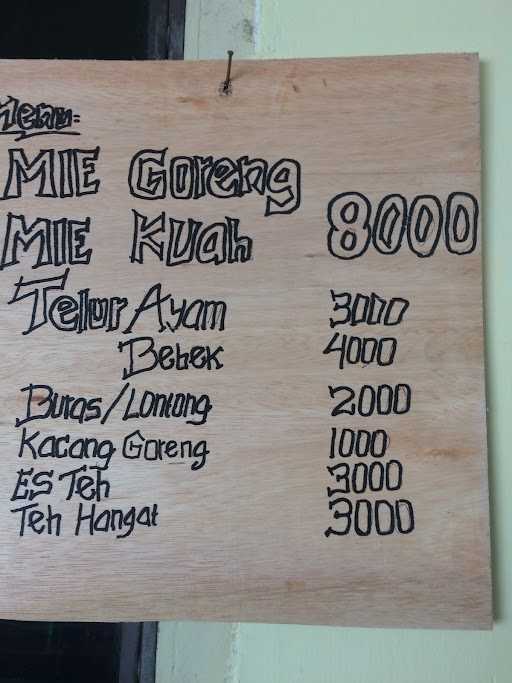 Menu:
MIE Goreng
MIE Kuah 8000
Telur Ayam 3000
Bebek 4000
Buras/Lontong 2000
Kacang Goreng 1000
ES Teh 3000
Teh Hangat 3000